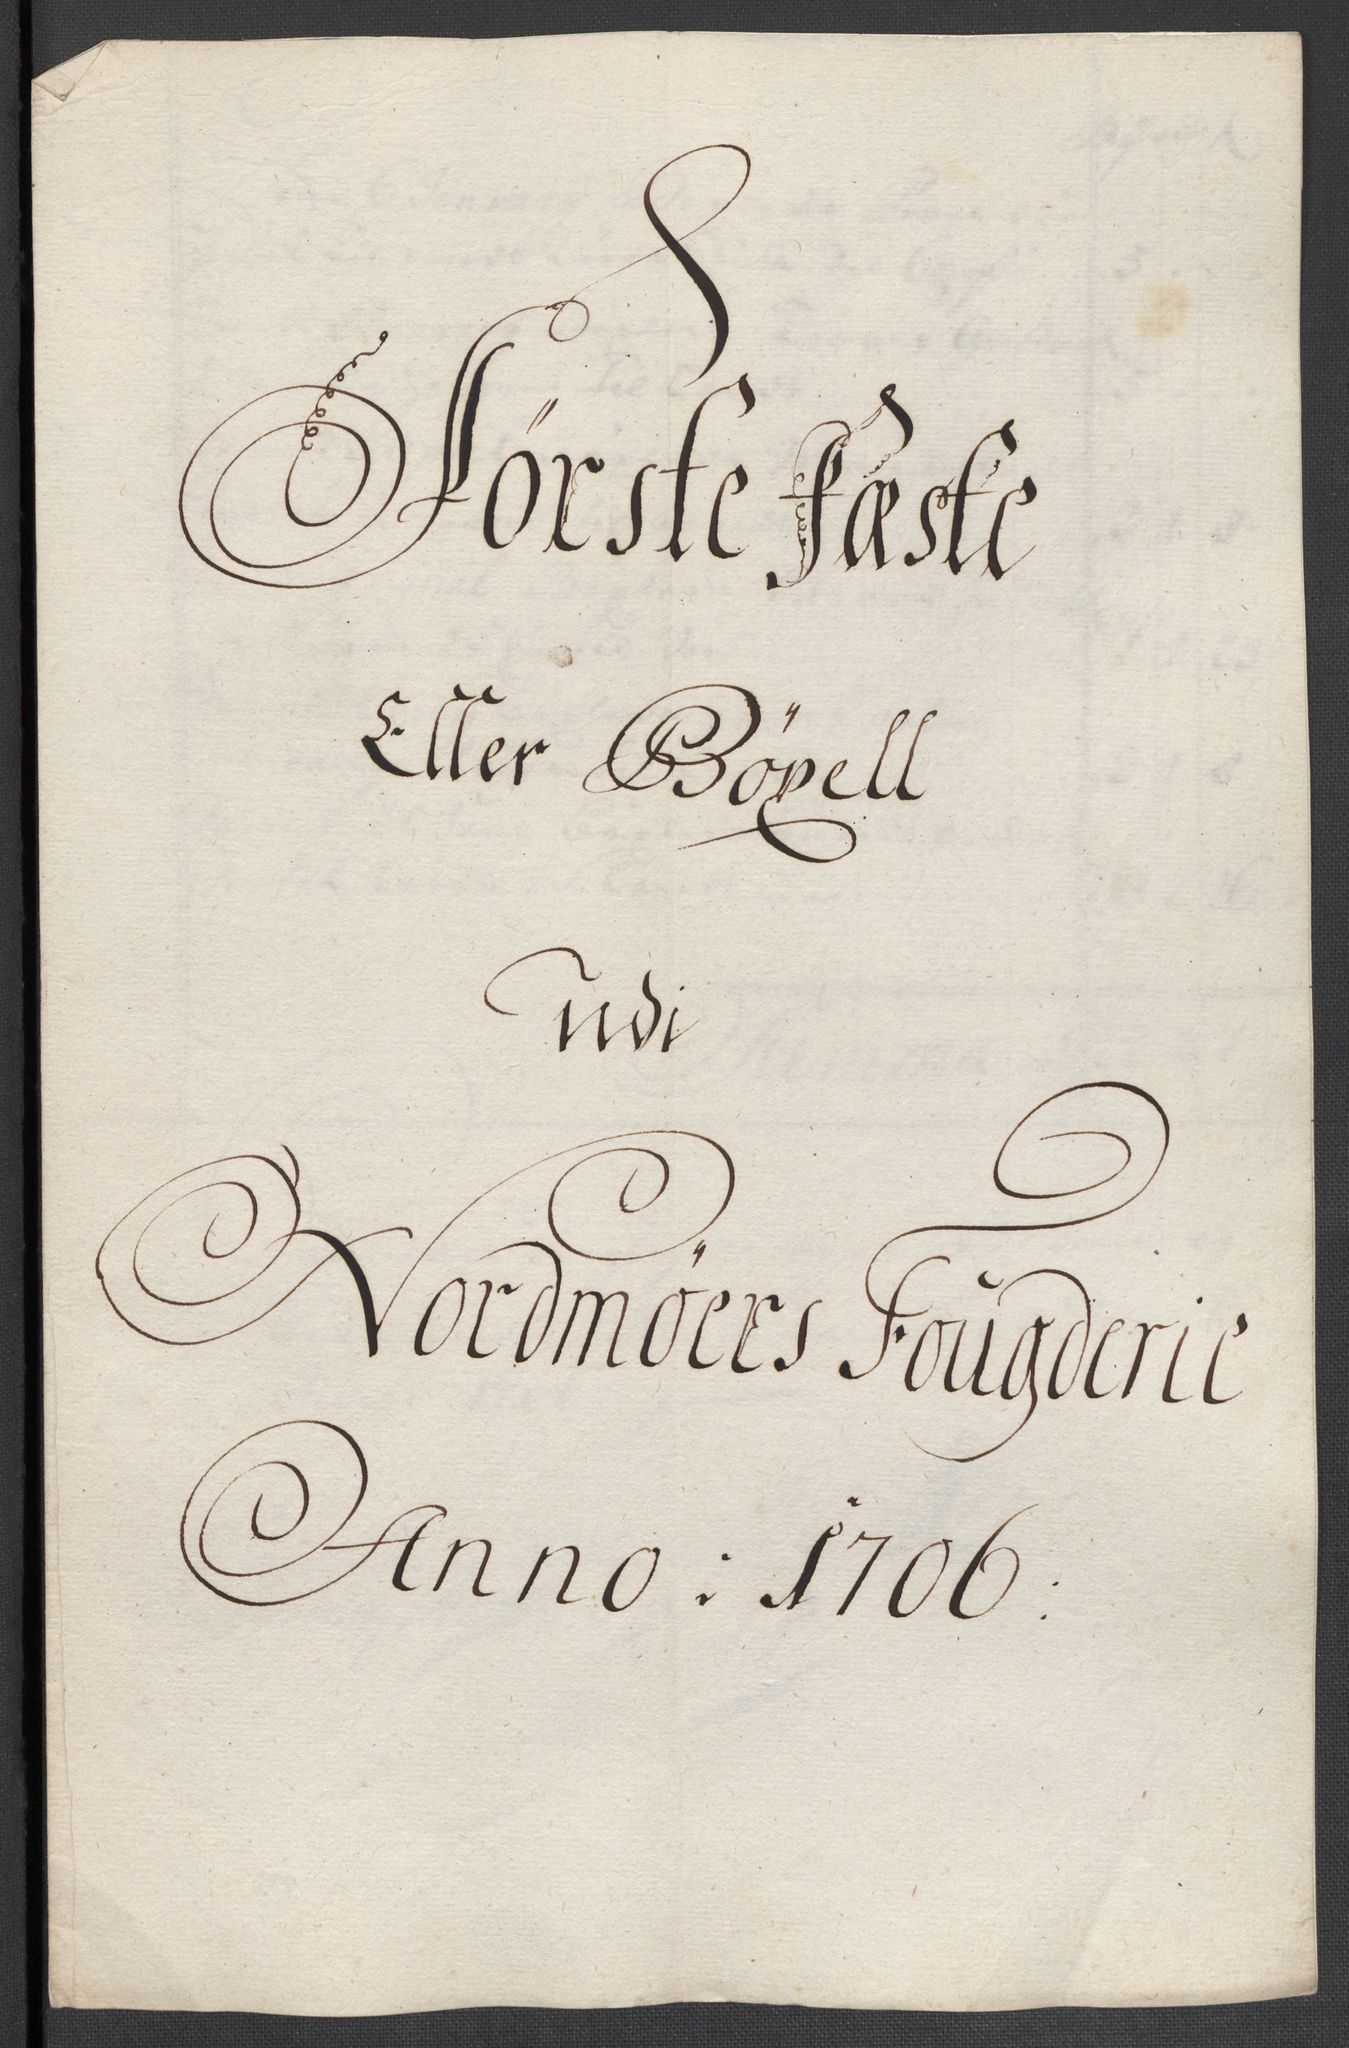 Første Fæste
Eller Böxell
udi
Nordmöers Fougderie
Anno: 1706: